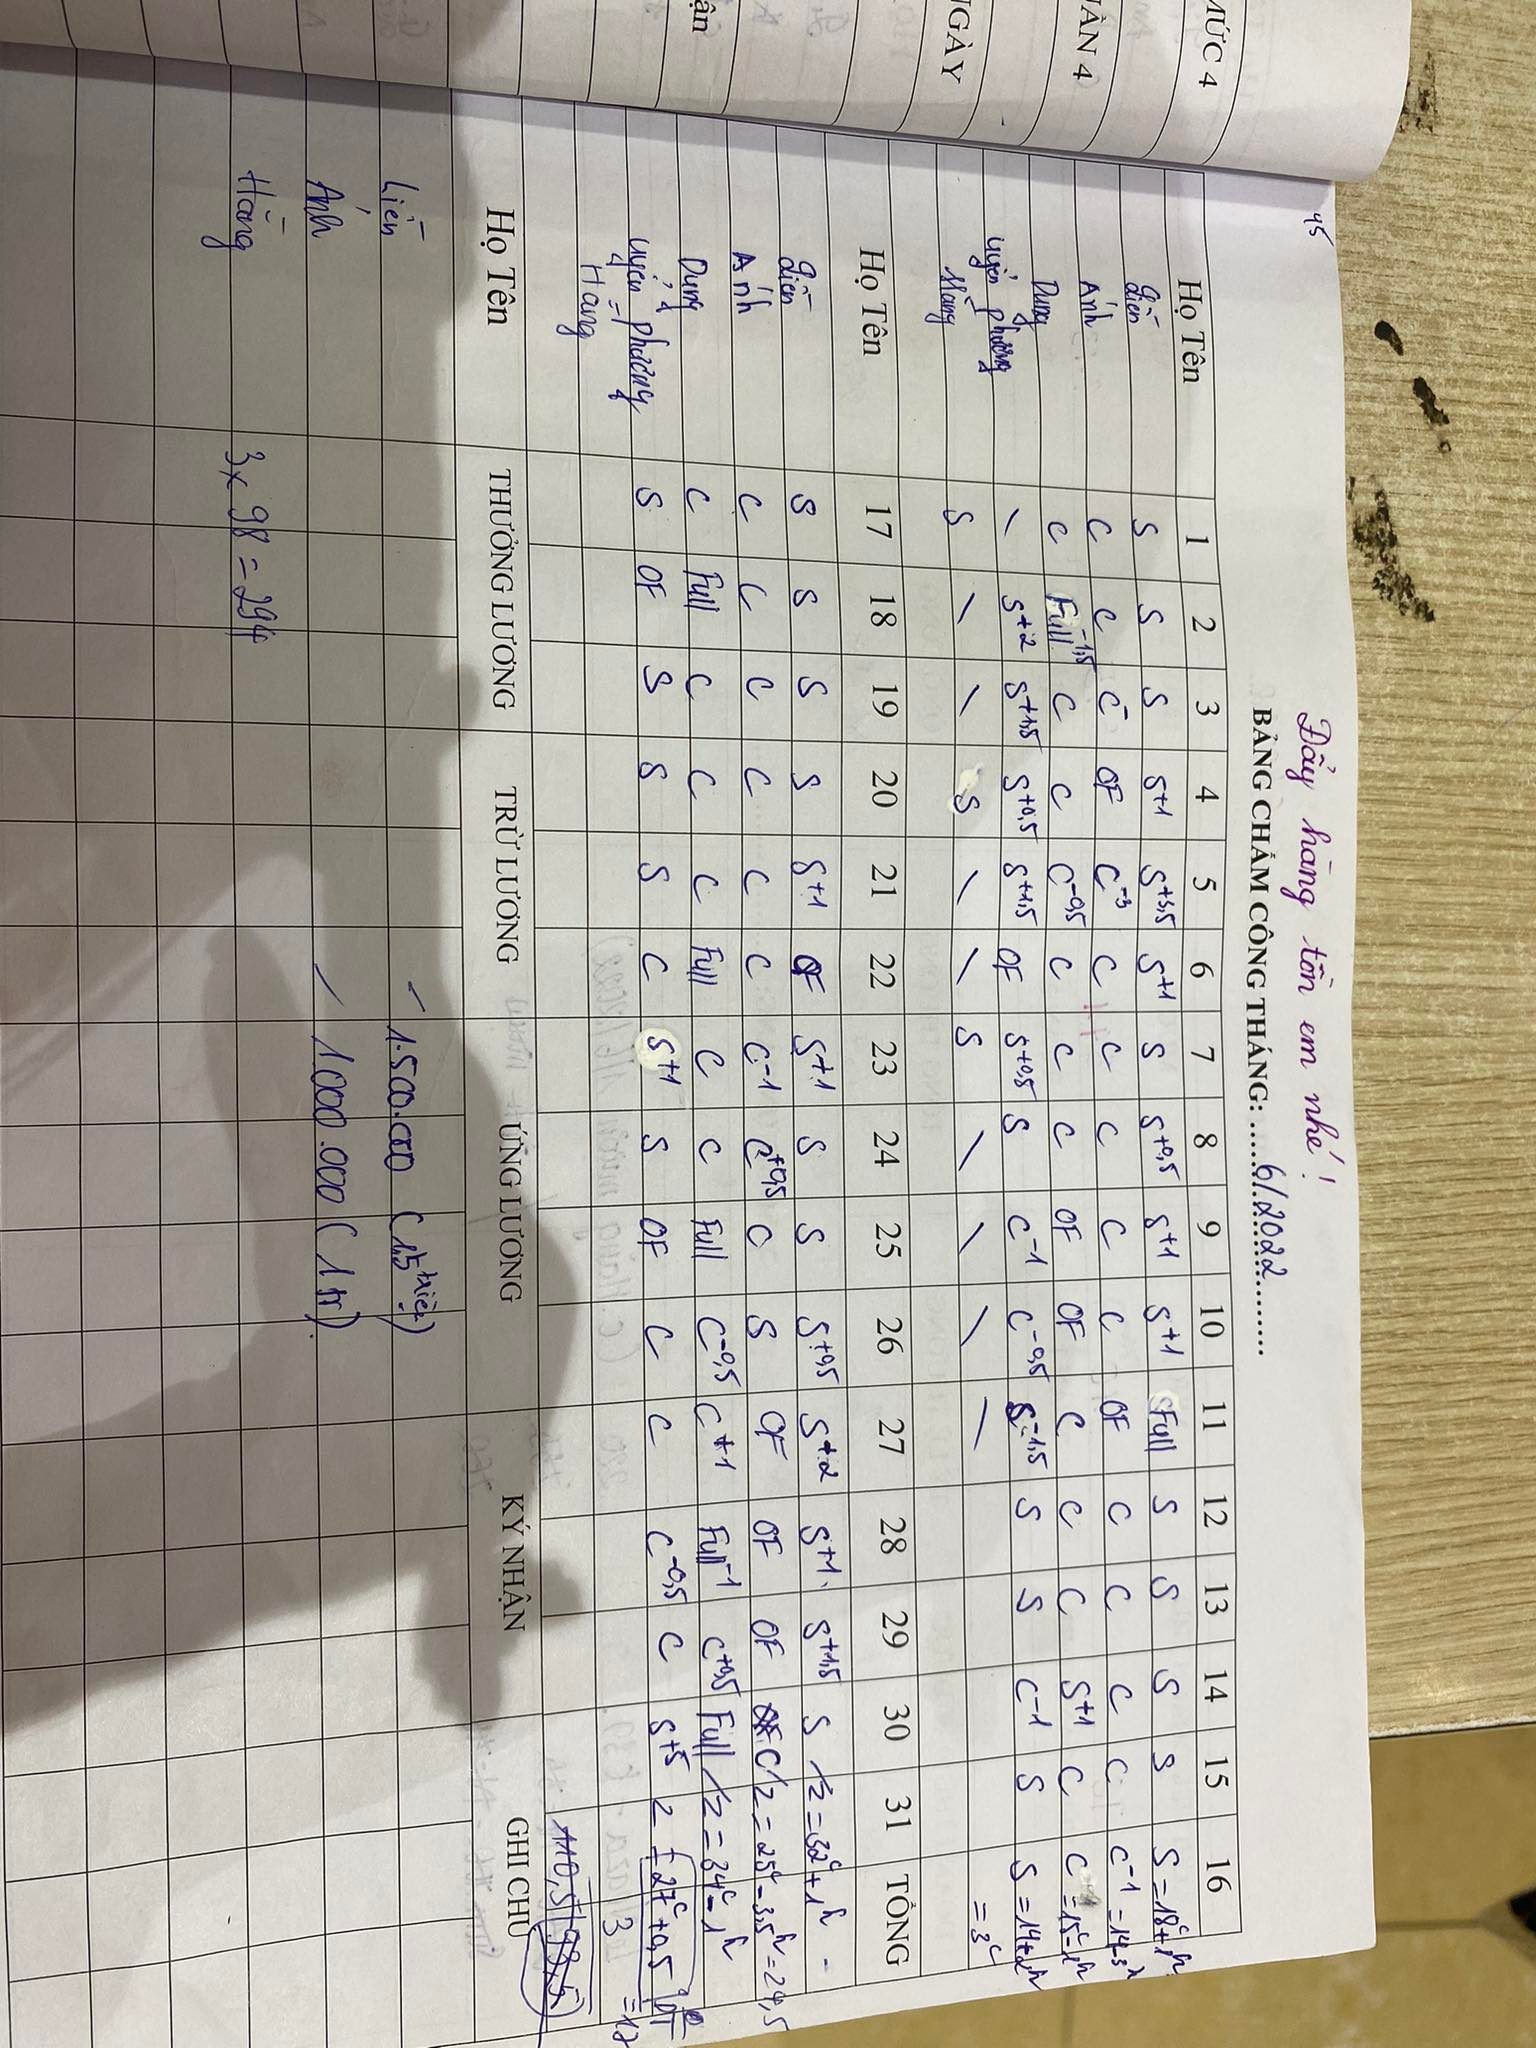 45
Đẩy hàng tồn em nhé!
BẢNG CHẤM CÔNG THÁNG: 6/2022
MỨC 4
UẦN 4
NGÀY
ận
Họ Tên 1 2 3 4 5 6 7 8 9 10 11 12 13 14 15 16
Liên S S S S+1 S+3,5 S+1 S S+0,5 S+1 S+1 Full S S S S S = 18c + 1h
Ánh C C C- OF C-3 C C C C C OF C C C C C-1 = 14-3h
Dung C Full-1,5 C C C-0,5 C C C OF OF C C C S+1 C C = 15c-1h
Uyển Phương \ S+2 S+1,5 S+0,5 S+1,5 OF S+0,5 S C-1 C-0,5 S-1,5 S S C-1 S S = 14+2h
Hằng S \ \ S \ \ S \ \ \ \ = 3c
Họ Tên 17 18 19 20 21 22 23 24 25 26 27 28 29 30 31 TỔNG
Liên S S S S S+1 OF S+1 S S S+0,5 S+2 S+1 S+1,5 S / = 32c + 1h
Ánh C C C C C C C-1 C+0,5 C S OF OF OF C / = 25c - 3,5h = 24,5
Dung C Full C C C Full C C Full C-0,5 C+1 Full-1 C+0,5 Full / = 34c - 1h
Uyển Phương S OF S S S C S+1 S OF C C C-0,5 C S+5 = 27c + 0,5
Hằng 3
110,5 93,5
Họ Tên THƯỞNG LƯƠNG TRỪ LƯƠNG ỨNG LƯƠNG KÝ NHẬN GHI CHÚ
Liên - 1.500.000 (1,5 triệu)
Ánh - 1000.000 (1 tr).
Hằng 3 x 98 = 294